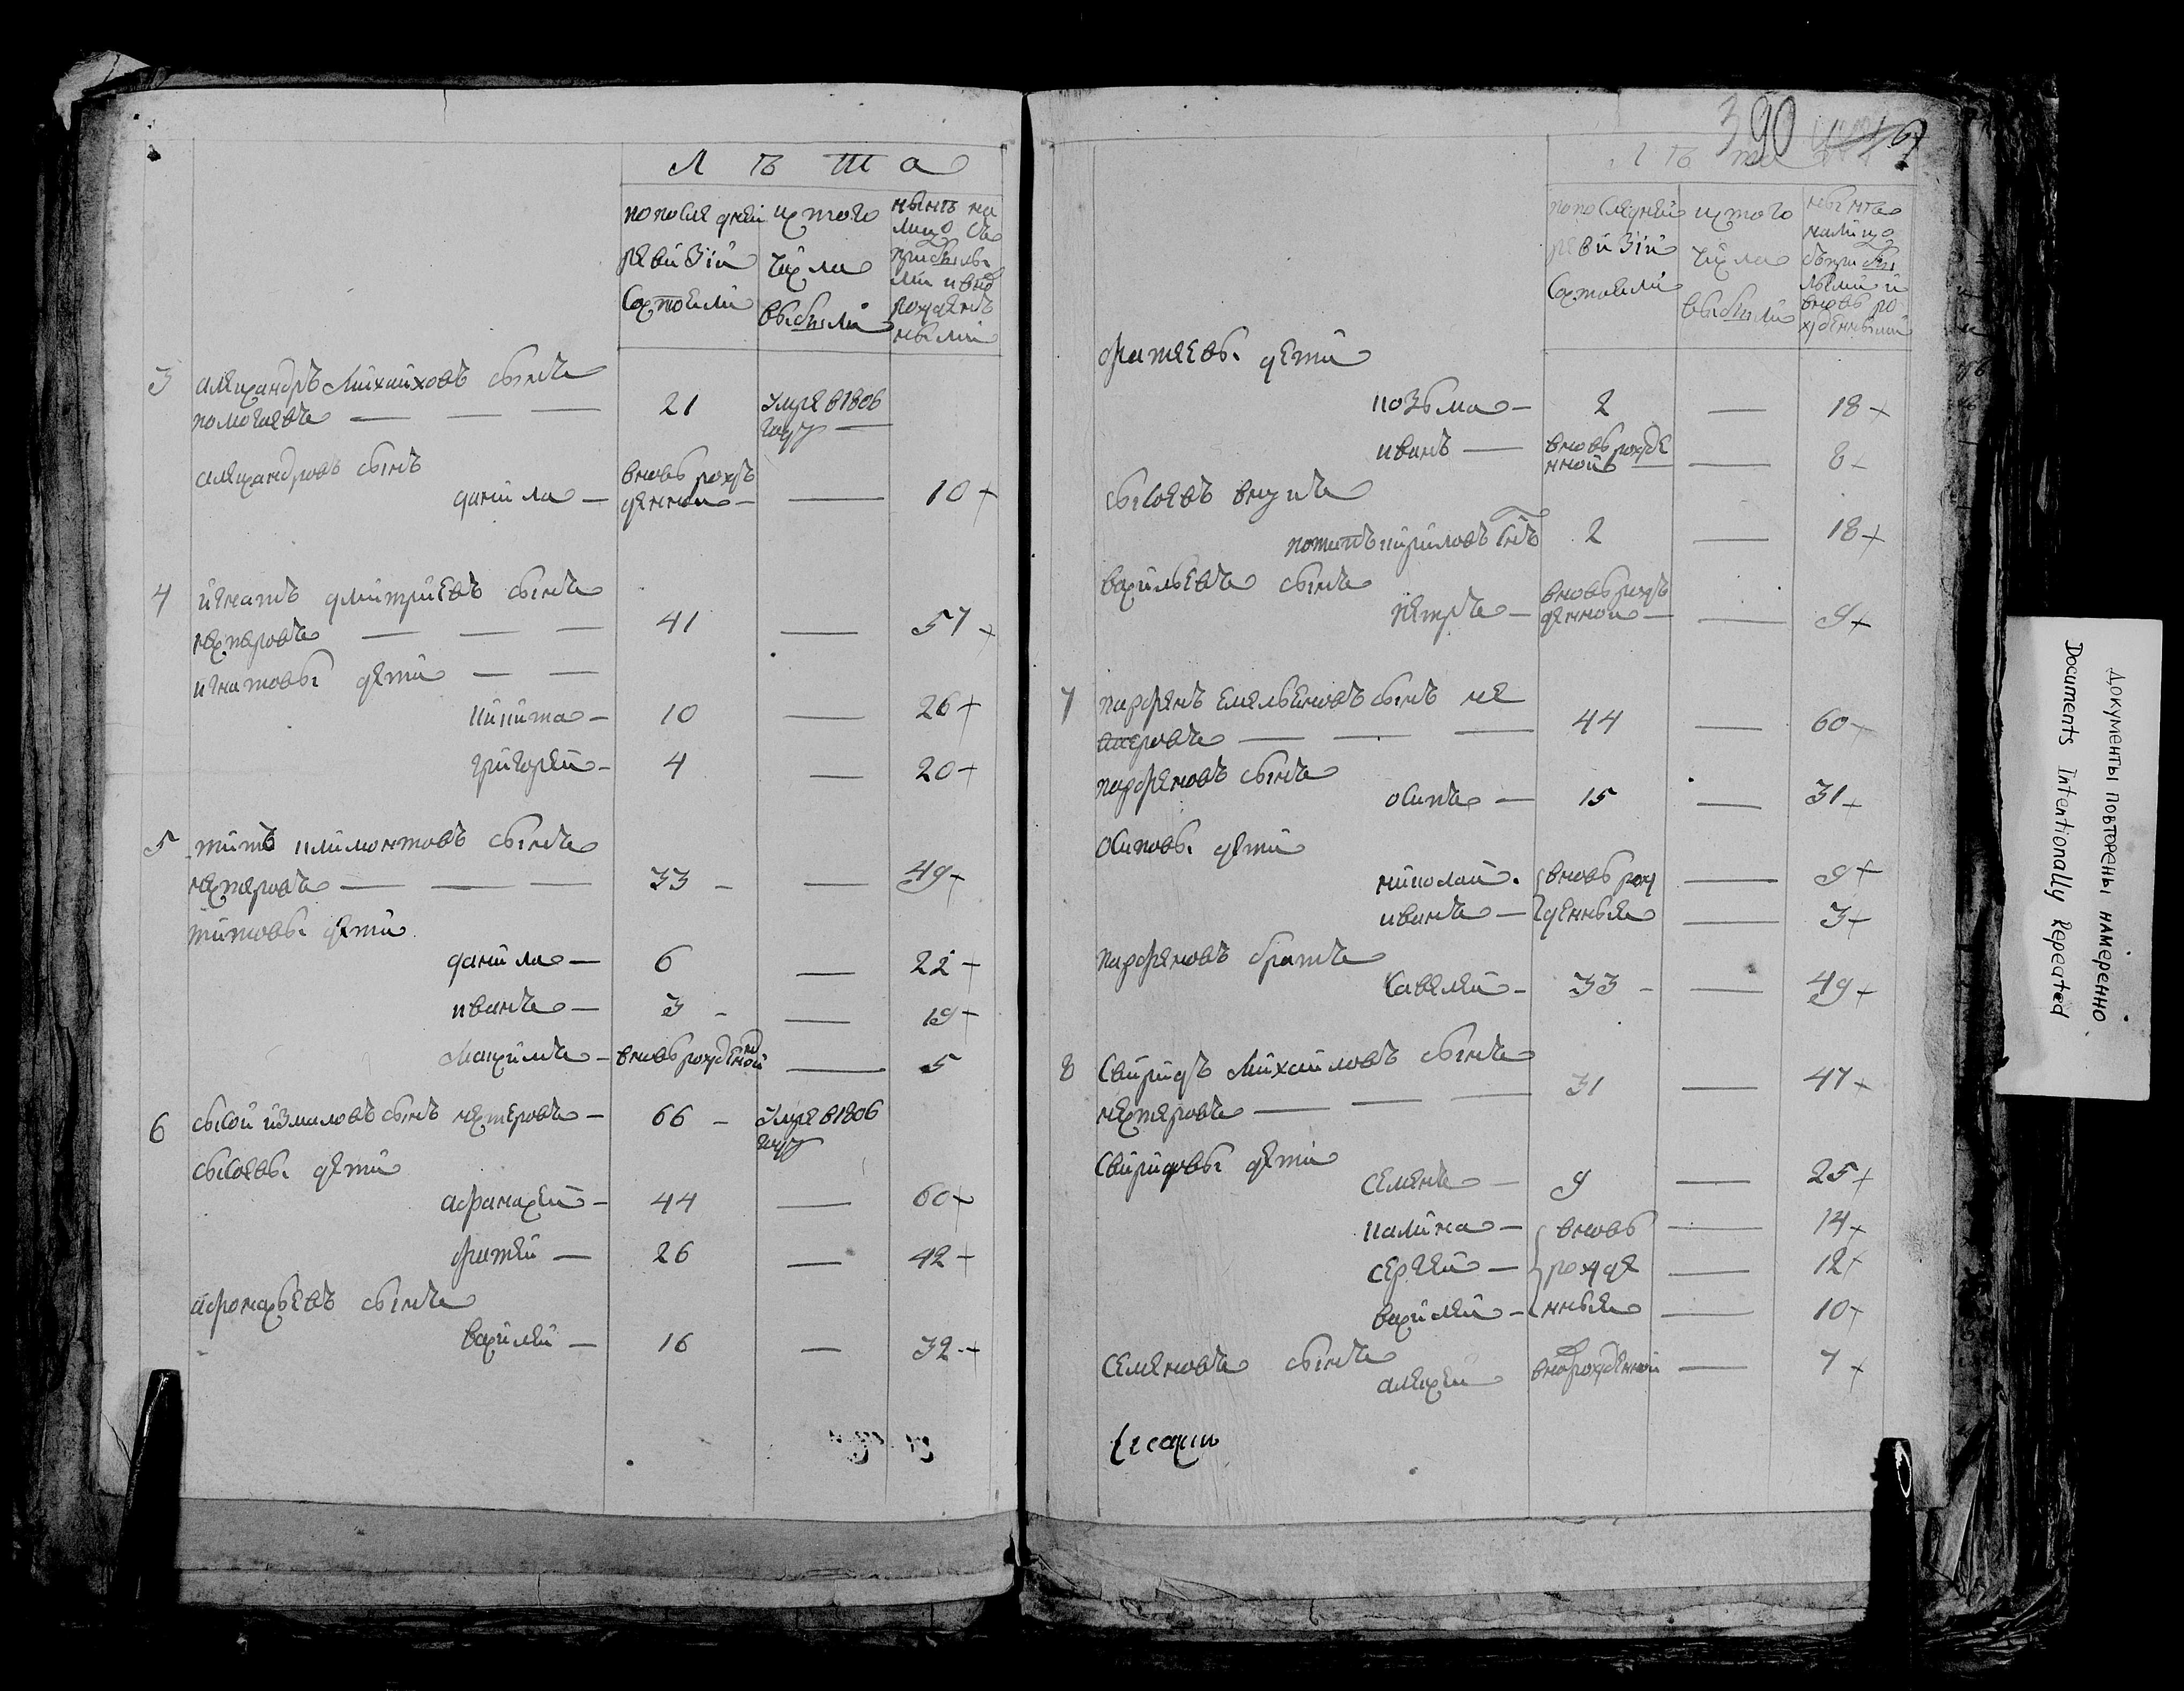 Лѣта
по последней
ревизіи
состояли
ис того
числа
выбыли
нынѣ на
лицо съ
прибылы
ми и вно
рожденъ
ными
3 александръ Михаиховъ сынъ
21
Умре в 1806
году
александровъ сынъ
данила
вновь рожъ
денной
10
4 игнатъ дмитриевъ сынъ
нестеровъ
41
57
игнатовы дети
никита 10 26
григорей 4 20
5 титъ климонтовъ сынъ
нестеровъ 33 49
титовы дети
данила 6 22
иванъ 3 19
Максимъ вновь рожденной 5
6 сысой измаловъ сынъ нестеровъ 66 Умре в 1806
году
сысоевы дети
афанасей 44 60
фатей 26 42
афонасьевъ сынъ
василей 16 32
390
Лѣта
по последней
ревизіи
состояли
ис того
числа
выбыли
нынѣ
налицо
съ прибы
лыми и
вновь ро
жденными
фатеевы дети
козьма 2 18
иванъ вновь рожде
нной 8
сысоевъ внукъ
потапъ кириловъ снъ 2 18
васильевъ сынъ
петръ
вновь рожъ
денной 9
7 парфенъ емельеновъ сынъ не
стеровъ 44 60
парфеновъ сынъ
осипъ 15 31
осиповы дети
николай вновь рож 9
иванъ денные 3
парфеновъ братъ
савелей 33 49
8 Свиридъ Михаиловъ сынъ
нестеровъ 31 47
Свиридовы дети
семенъ 9 25
калина вновь 14
сергей рожде 12
василей нные 10
семеновъ сынъ
алексей вновь рожденной 7
Документы повторены намеренно
Documents Intentionally Repeated